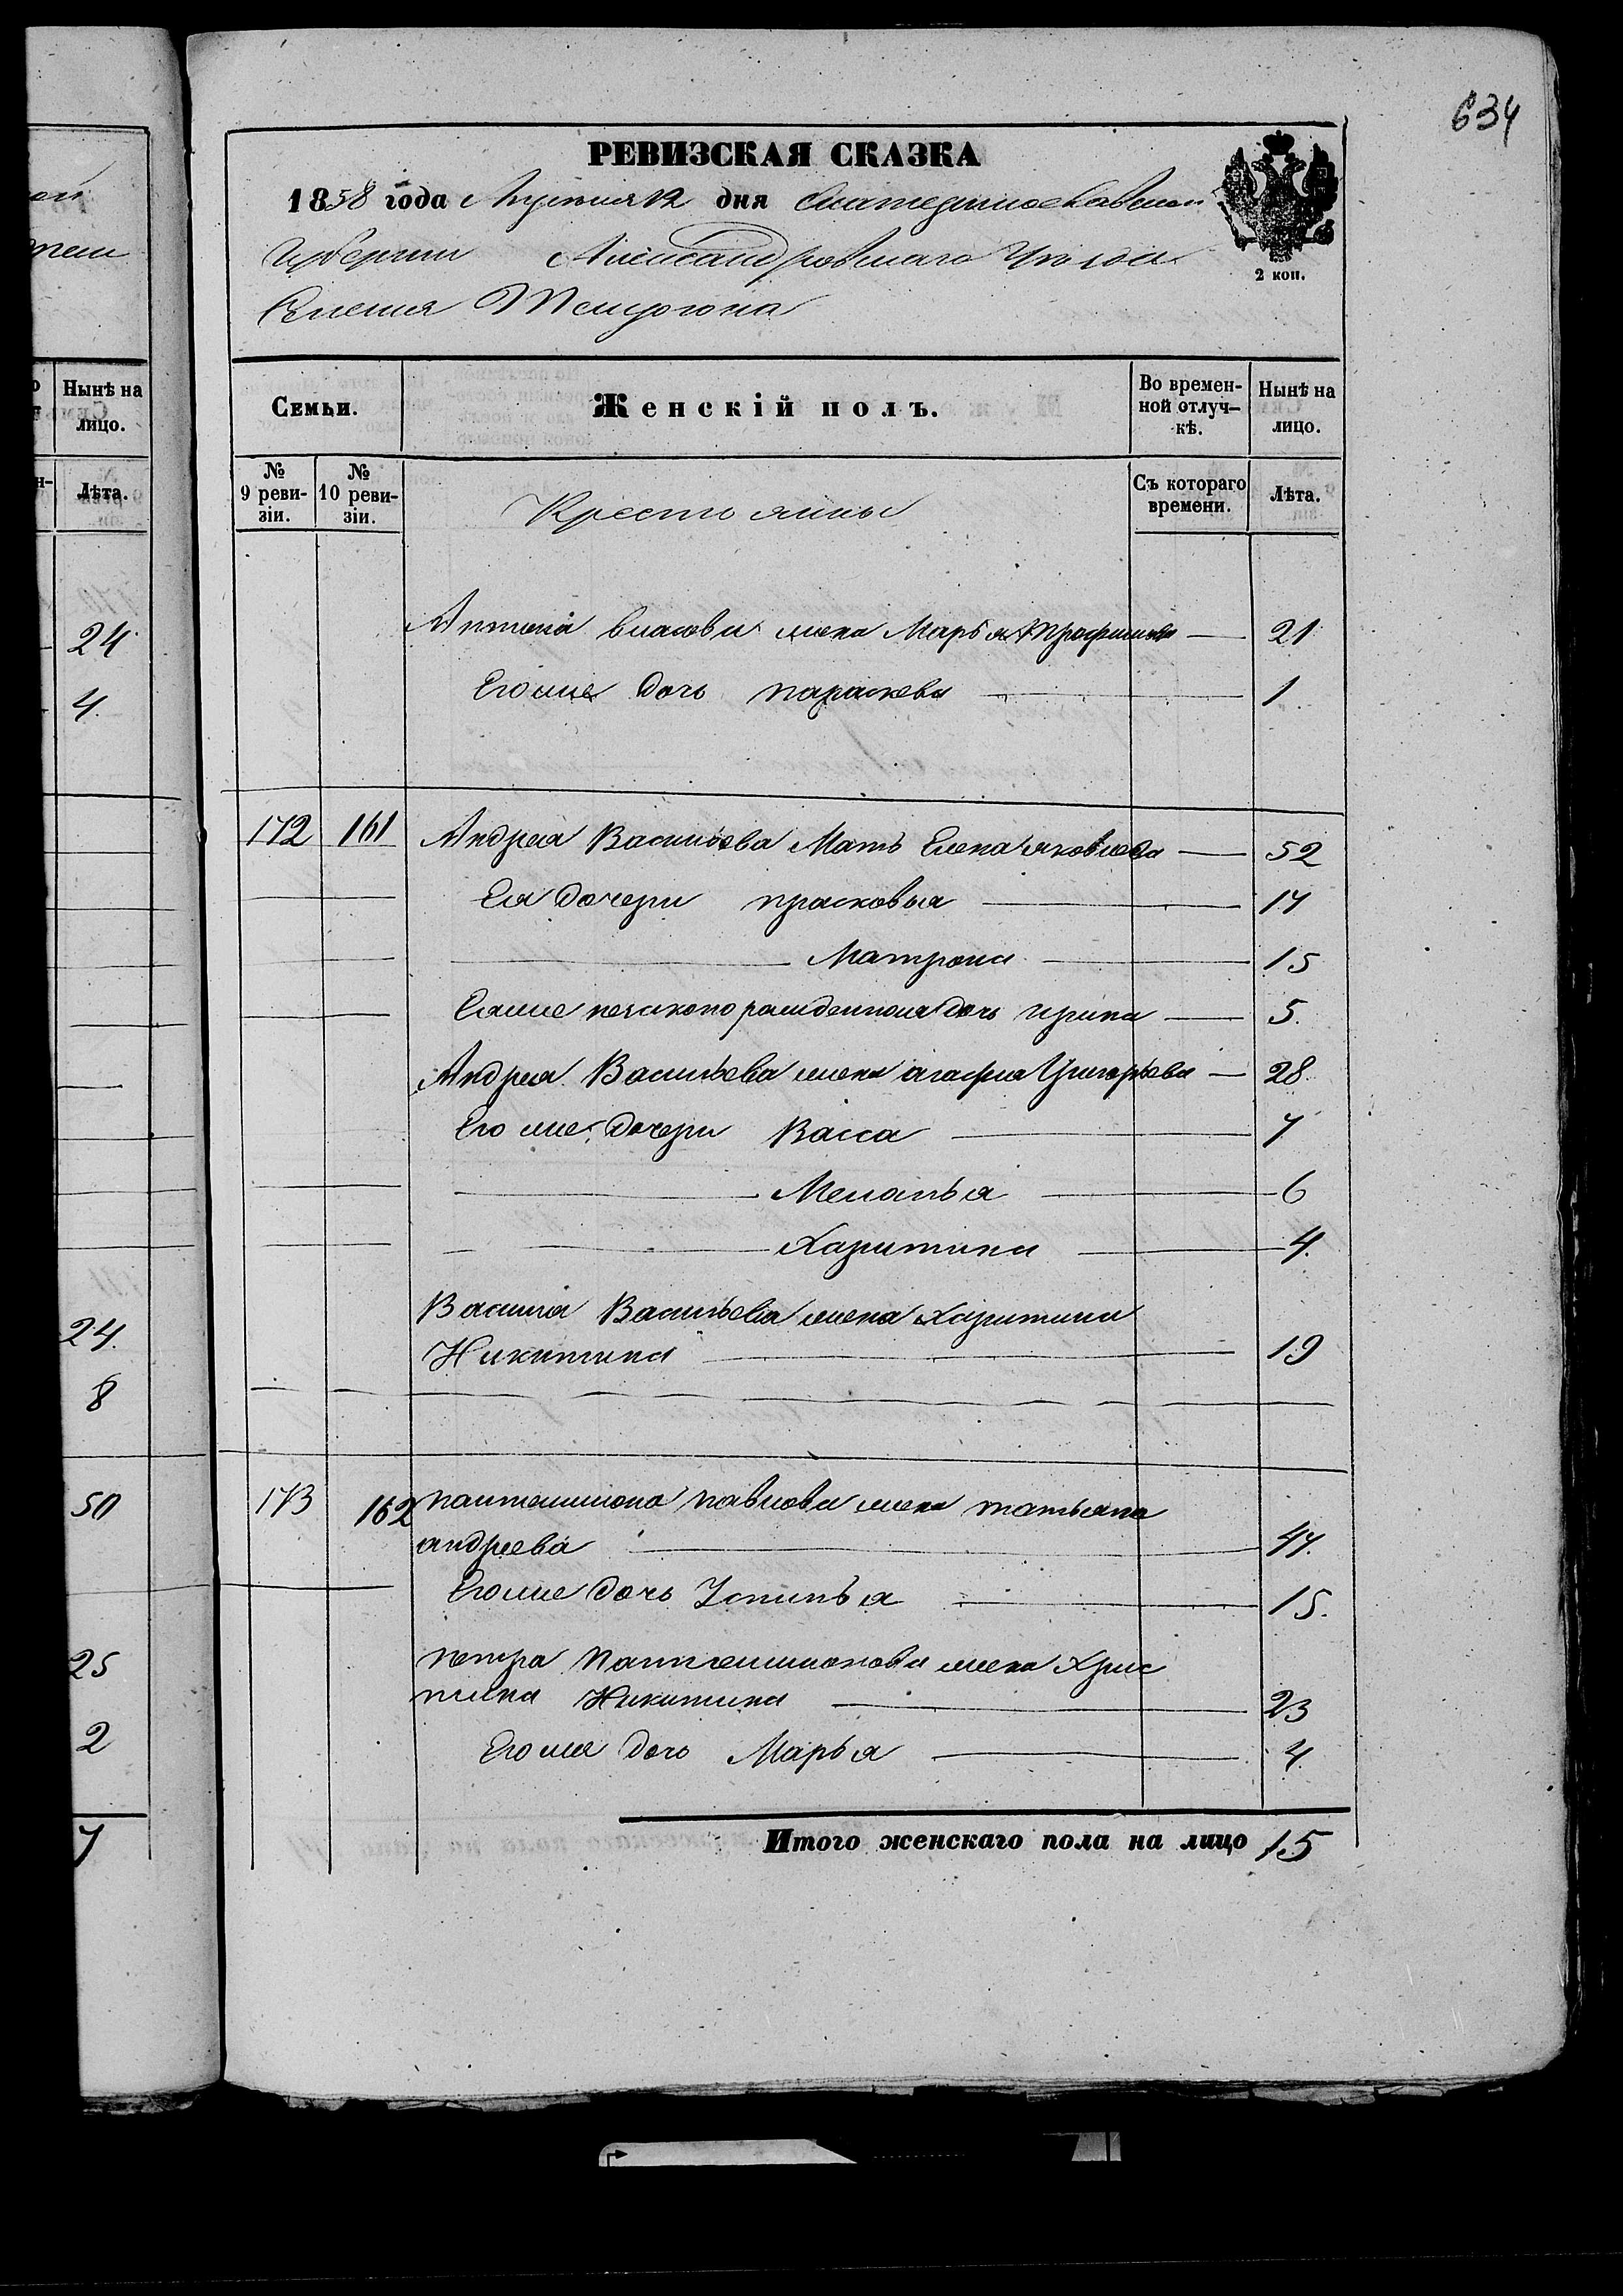 634
РЕВИЗСКАЯ СКАЗКА
1858 года Августа 12 дня Екатеринославской
Губернии Александровскаго Уѣзда
Селения Темрюка
2 коп.
Семьи.
Женскій полъ.
Во времен-
ной отлуч-
кѣ.
Нынѣ на
лицо.
№
9 реви-
зіи.
№
10 реви-
зіи.
Крестьяны
Съ котораго
времени.
Лѣта.
Антона власова жена Марья Трофимова 21
Егоже дочь параскева 1
172 161 Андрея Васильева Мать Елена яковлева 52
Ея дочери прасковья 17
Матрона 15
Еяже незаконорожденная дочь ирина 5.
Андрея Васильева жена агафия Григорьева 28
Его же дочери Васса 7
Меланья 6
Харитина 4.
Василия Васильева жена Харитина
Никитина 19
173 162 пантелимона павлова жена татьяна
андреева 47.
Егоже дочь Устинья 15.
петра Пантелимонова жена Хрис
тина Никитина 23
Егоже дочь Марья 4.
Итого женскаго пола на лицо 15
Нынѣ на
лицо.
Лѣта.
24
4.
24.
8
50
25
2
7